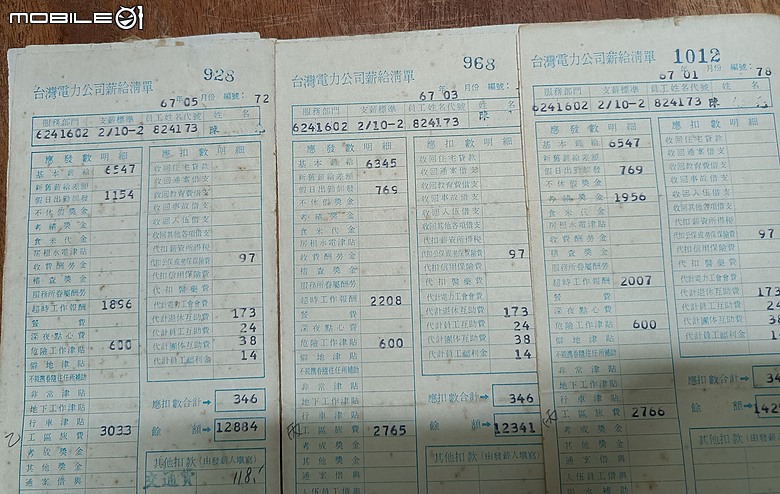 MOBILE01
928
台灣電力公司薪給清單
67年05月份 編號：72
服務部門 支薪標準 員工姓名代號 姓名
6241602 2/10-2 824173 陳
應發數明細 應扣數明細
基本薪給 6547 收回住宅貸款
新舊薪給差額 收回通案借支
假日出勤加發 1154 收回教育費借支
不休假獎金 收回事故借支
考績獎金 收回入伍借支
食米代金 收回其他各項借支
房租水電津貼 代扣薪資所得稅
收費酬勞金 97
稽查獎金 代扣信用保險費
服務所眷屬酬勞 代扣醫藥費
超時工作報酬 1896
餐費 代計退休互助費 173
深夜點心費 代計員工互助費 24
危險工作津貼 600 代計團體互助費 38
僻地津貼 代計員工福利金 14
非常津貼
地下工作津貼 應扣數合計→ 346
行車津貼
工區旅費 3033 餘額→ 12884
考成獎金
其他獎金 其他扣款(由發薪人填寫)
通案借與 交通費 118.-
968
台灣電力公司薪給清單
67年03月份 編號：
服務部門 支薪標準 員工姓名代號 姓名
6241602 2/10-2 824173 陳
應發數明細 應扣數明細
基本薪給 6345 收回住宅貸款
新舊薪給差額 收回通案借支
假日出勤加發 769 收回教育費借支
不休假獎金 收回事故借支
考績獎金 收回入伍借支
食米代金 收回其他各項借支
房租水電津貼 代扣薪資所得稅
收費酬勞金 97
稽查獎金 代扣信用保險費
服務所眷屬酬勞 代扣醫藥費
超時工作報酬 2208 代計電力工會會費
餐費 代計退休互助費 173
深夜點心費 代計員工互助費 24
危險工作津貼 600 代計團體互助費 38
僻地津貼 代計員工福利金 14
非常津貼
地下工作津貼 應扣數合計→ 346
行車津貼
工區旅費 2765 餘額→ 12341
考成獎金
其他獎金 其他扣款(由發薪人填寫)
通案借與
入伍員工借與
1012
台灣電力公司薪給清單
67年01月份 編號：78
服務部門 支薪標準 員工姓名代號 姓名
6241602 2/10-2 824173 陳
應發數明細 應扣數明細
基本薪給 6547 收回住宅貸款
新舊薪給差額 收回通案借支
假日出勤加發 769 收回教育費借支
不休假獎金 收回事故借支
考績獎金 1956 收回入伍借支
食米代金 收回其他各項借支
房租水電津貼 代扣薪資所得稅
收費酬勞金 97
稽查獎金 代扣信用保險費
服務所眷屬酬勞 代扣醫藥費
超時工作報酬 2007 代計電力工會會費
餐費 代計退休互助費 173
深夜點心費 代計員工互助費 24
危險工作津貼 600 代計團體互助費 38
僻地津貼 代計員工福利金 14
非常津貼
地下工作津貼 應扣數合計→
行車津貼
工區旅費 2766 餘額→
考成獎金
其他獎金 其他扣款(由發薪人填寫)
通案借與
入伍員工借與